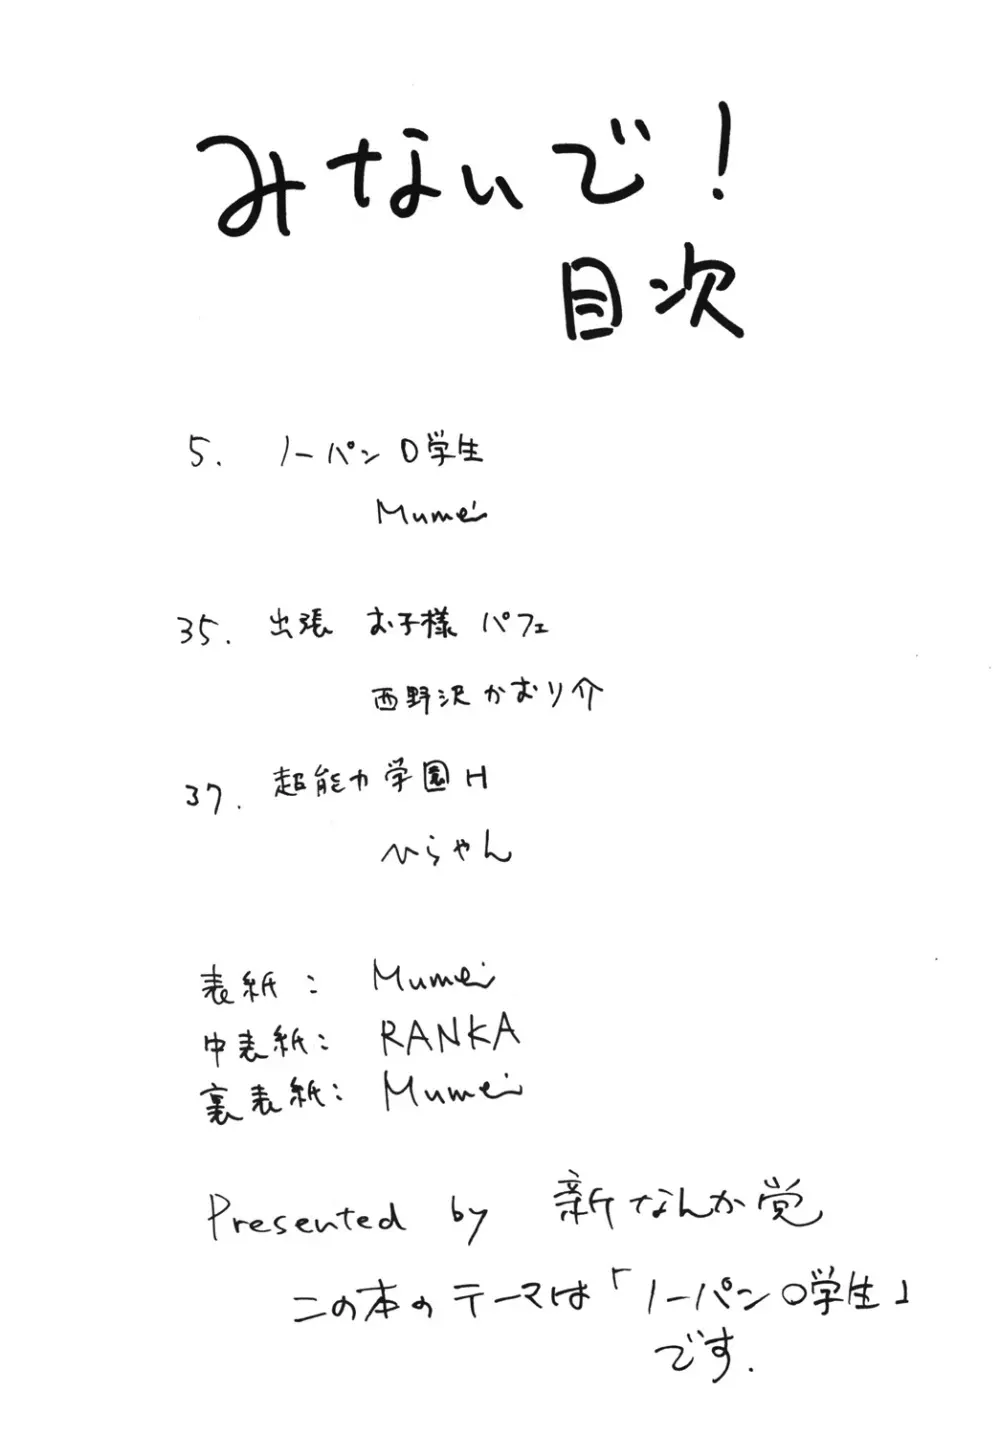 みないで!
目次
5. ノーパン○学生
Mumei
35. 出張 お子様 パフェ
西野沢かおり介
37. 超能力学園H
ひらやん
表紙: Mumei
中表紙: RANKA
裏表紙: Mumei
Presented by 新なんか党
この本のテーマは「ノーパン○学生」
です.